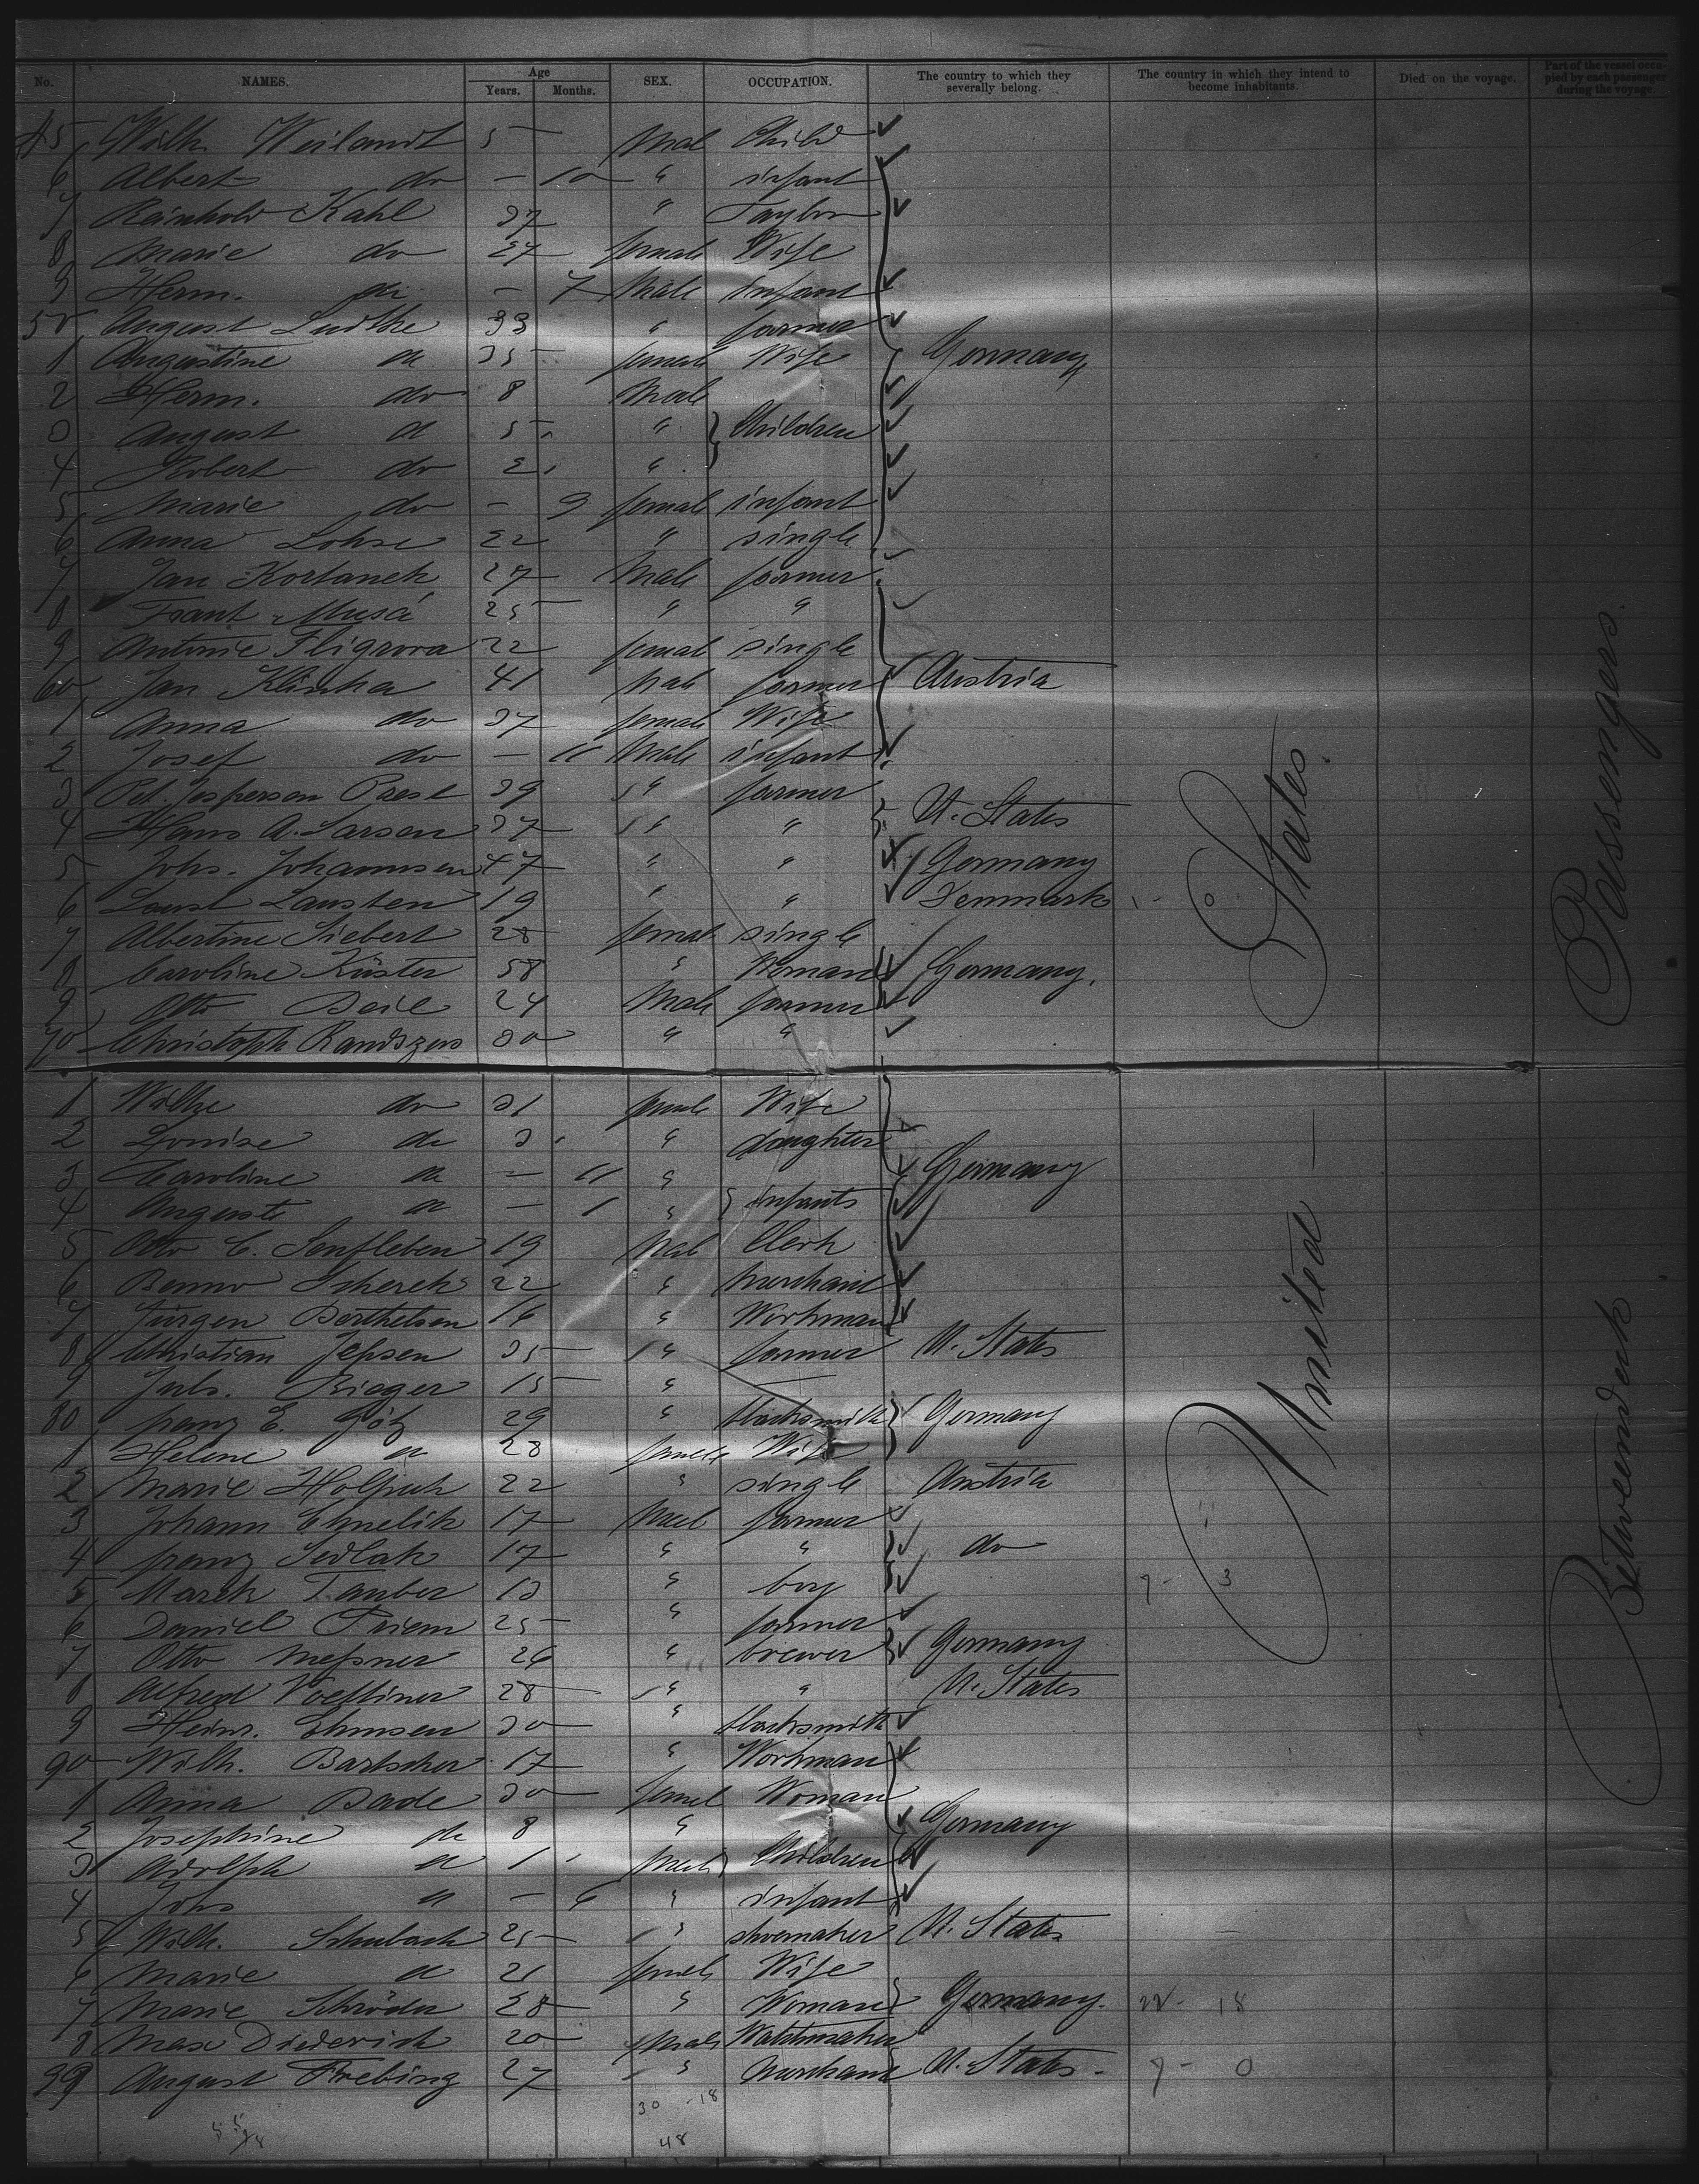 No. NAMES. Age Years. Months. SEX. OCCUPATION. The country to which they severally belong. The country in which they intend to become inhabitants. Died on the voyage. Part of the vessel occupied by each passenger during the voyage.
45 Wilh. Weilandt 5 Mal Child
6 Albert do — 10 " infant
7 Reinhold Kahl 37 " Taylor
8 Marie do 27 female Wife
9 Herm. do — 7 Male infant
50 August Ludtke 33 " farmer
1 Augustine do 35 female Wife Germany
2 Herm. do 8 Male
3 August do 5 " Children
4 Robert do 2 "
5 Marie do — 9 female infant
6 Anna Lohse 22 " single
7 Jan Kortanek 27 Male farmer
8 Frant. Musá 25 " "
9 Antonie Fligrova 22 femal single
60 Jan Klinka 41 Male farmer Austria
1 Anna do 37 female Wife
2 Josef do — 11 Male infant
3 Pet. Jesperson Paest 39 " farmer
4 Hans A. Larsen 37 " " U. States
5 Johs. Johannsen 47 " " Germany
6 Laust Lausten 19 " " Denmark
7 Albertine Siebert 28 femal single
8 Caroline Küster 58 " Woman Germany.
9 Otto Beil 24 Male farmer
70 Christoph Randszus 30 " "
1 Wilhe do 31 female Wife
2 Louise do 3 " daughter
3 Caroline do — 11 " Germany
4 Auguste do — 1 " infants
5 Otto C. Senfleben 19 Male Clerk
6 Benno Scherek 22 " Merchant
7 Jürgen Berthelsen 16 " Workman
8 Christian Jepsen 35 " farmer U. States
9 Juls. Rieger 15 " —
80 franz E. Götz 29 " blacksmith Germany
1 Helene do 28 female Wife
2 Marie Holpuch 22 " single Austria
3 Johann Chmelik 17 Male farmer
4 franz Sedlak 17 " " do
5 Marek Tauber 13 " boy 7 - 3
6 Daniel Priem 25 " farmer
7 Otto Meßner 26 " brewer Germany
8 Alfred 28 " " U. States
9 Heinr. Ehmsen 30 " blacksmith
90 Wilh. Bartscher 17 " Workman
1 Anna Bade 30 femal Woman
2 Josephine do 8 " Germany
3 Adolph do 1 Male Children
4 Johs do — 6 " infant
5 Wilh. Schubach 25 " shoemaker U. States
6 Marie do 21 female Wife
7 Marie Schröder 28 " Woman Germany. 22 - 18
8 Max Diederich 20 Male Watchmaker
99 August Frebing 27 " Merchant U. States. 7 - 0
30 - 18
48
United States
Betweendeck Passengers